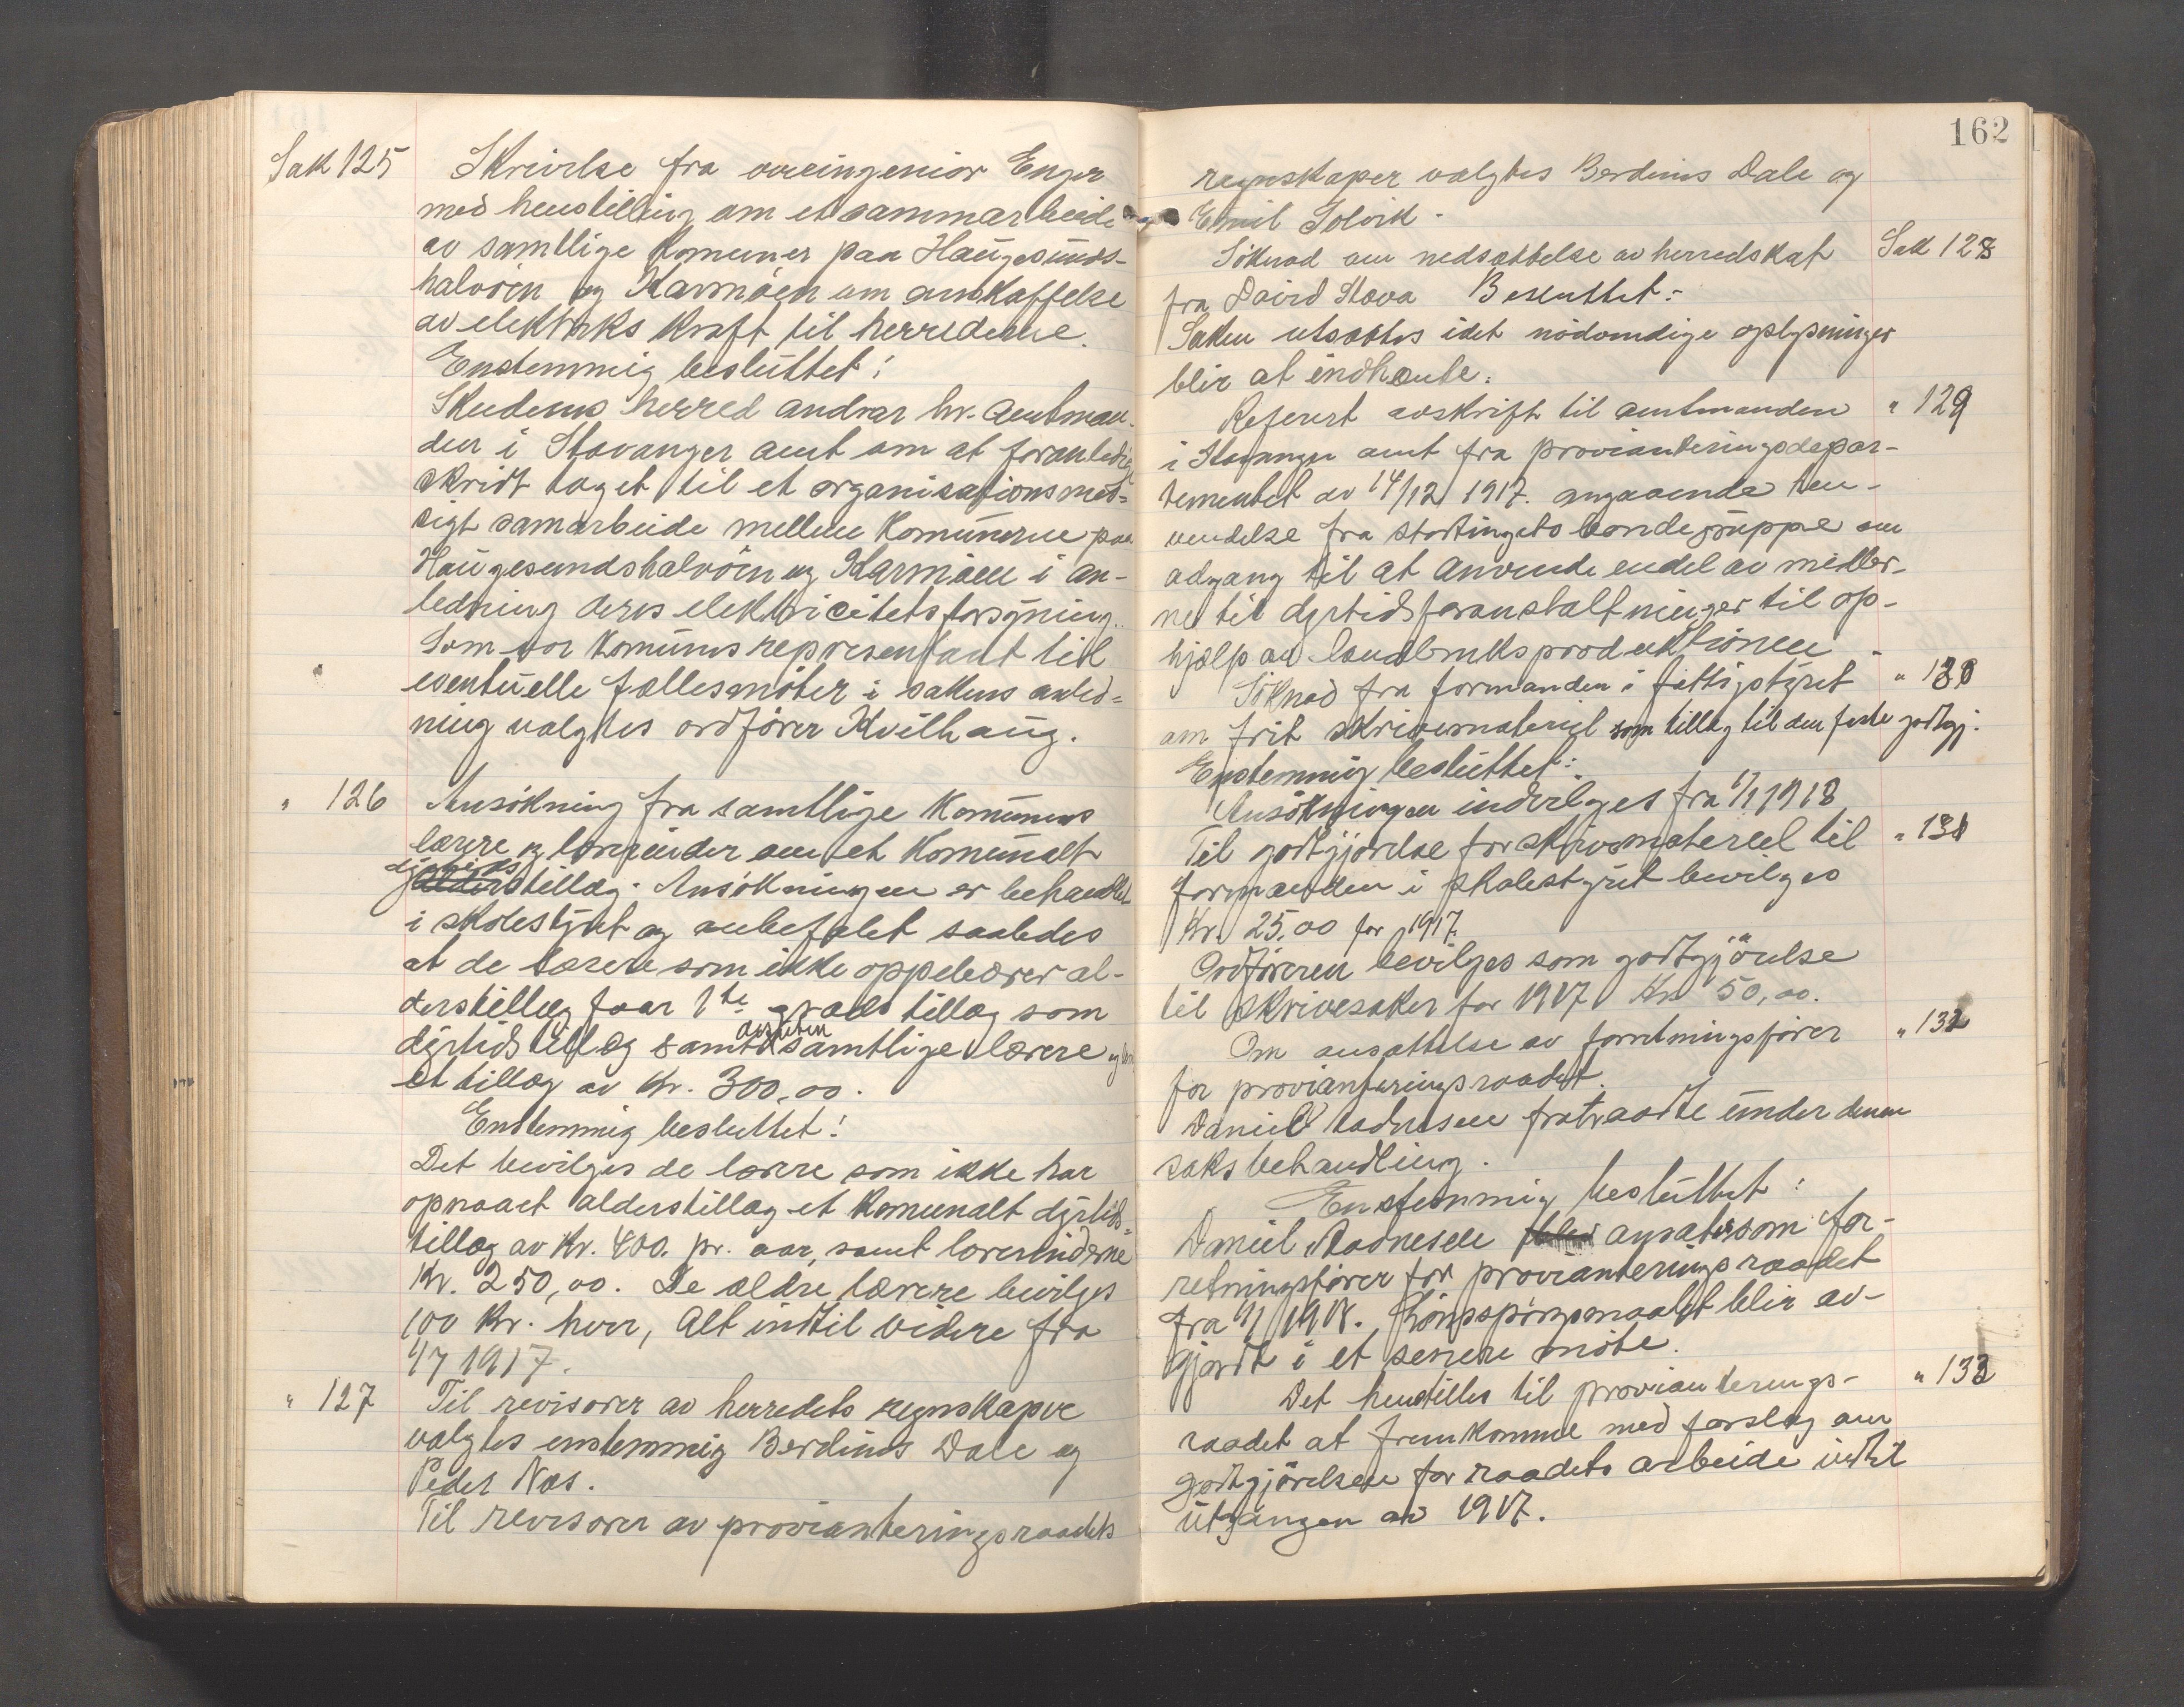 Sak 125 Skrivelse fra overingeniør Enger
med henstilling om et sammarbeide
av samtlige komuner paa Haugesunds-
halvöen og Karmöen om anskaffelse
av elektriks kraft til herrederne.
Enstemmig besluttet:
Skudenes herred andrar hr. Amtman-
den i Stavanger amt om at foranledige
skridt taget til et organisationsmæs-
sigt samarbeide mellem komunerne paa
Haugesundshalvöen og Karmöen i an-
ledning deres elektricitetsforsyning.
Som vor komunes representant til
eventuelle fællesmöter i sakens anled-
ning valgtes ordförer Kvilhaug.
" 126 Ansökning fra samtlige komunens
lærere og lærerinder om et komunalt
dyrtids
alderstillæg. Ansökningen er behandlet
i skolestyret og anbefalet saaledes
at de lærere som ikke oppebærer al-
derstillæg faar 1ste grads tillæg som
desuten
dyrtidstillæg samt samtlige lærere og
et tillæg av kr. 300,00.
Enstemmig besluttet:
Det bevilges de lærere som ikke har
opnaaet alderstillæg et komunalt dyrtids-
tillæg av kr. 400. pr. aar, samt lærerinderne
kr. 250,00. De ældre lærere bevilges
100 kr. hver, Alt indtil videre fra
1/7 1917.
" 127 Til revisorer av herredets regnskaper
valgtes enstemmig Berdines Dale og
Peder Næs.
Til revisorer av provianteringsraadets
162
regnskaper valgtes Berdines Dale og
Emil Solvik.
Söknad om nedsættelse av herredskat Sak 128
fra David Stava Besluttet:
Saken utsættes idet nödvendige oplysninger
blir at indhente.
Referert avskrift til amtmanden " 129
i Stavanger amt fra provianteringsdepar-
tementet av 14/12 1917. angaaende hen-
vendelse fra stortingets bondegruppe om
adgang til at anvende endel av midler-
ne til dyrtidsforanstaltninger til op-
hjælp av landbruksproduktionen
Söknad fra formanden i fattigstyret " 130
om frit skrivemateriel som tillæg til den faste godtgj.
Enstemmig besluttet:
Ansökningen indvilges fra 1/1 1918
Til godtgjörelse for skrivematereel til " 131
formanden i skolestyret bevilges
Kr. 25,00 for 1917.
Ordföreren bevilges som godtgjörelse
til skrivesaker for 1917 Kr 50,00.
Om ansættelse av forretningsförer " 132
for provianteringsraadet.
Daniel Aadnesen fratraadte under denne
saksbehandling.
Enstemmig besluttet:
Daniel Aadnesen ansættes som for-
retningsförer for provianteringsraadet
fra 1/1 1918. Lönsspörgsmaalet blir av-
gjordt i et senere möte.
Det henstilles til provianterings- " 133
raadet at fremkomme med forslag om
godtgjörelsen for raadets arbeide indtil
utgangen av 1917.